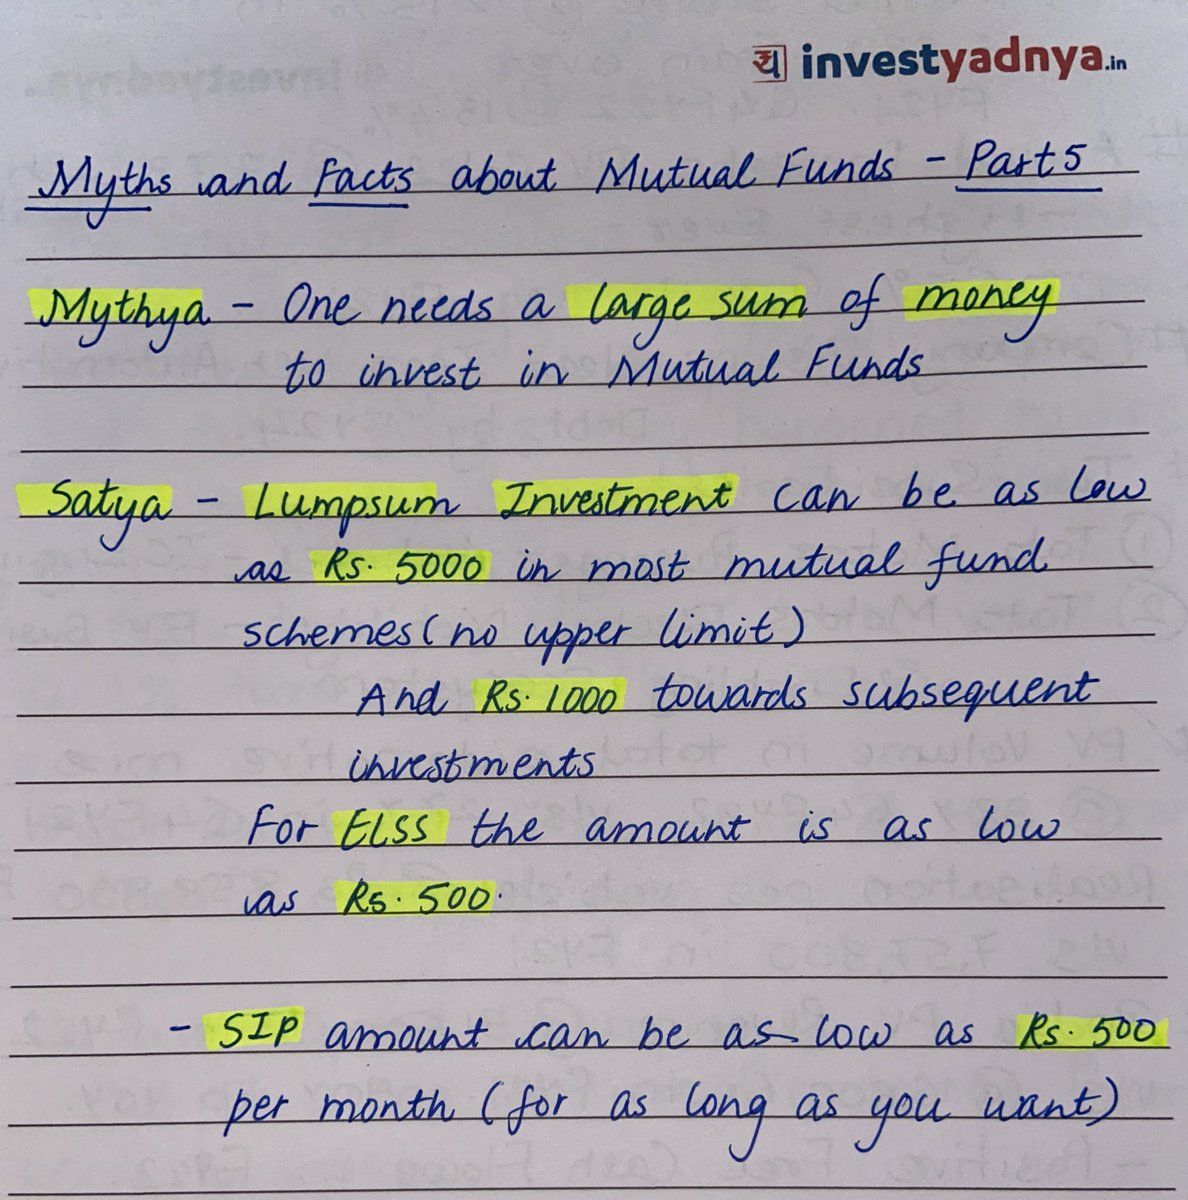 य investyadnya.in
Myths and Facts about Mutual Funds - Part 5
Mythya - One needs a large sum of money
to invest in Mutual Funds
Satya - Lumpsum Investment can be as low
as Rs. 5000 in most mutual fund
schemes (no upper limit)
And Rs. 1000 towards subsequent
investments
For ELSS the amount is as low
as Rs. 500.
- SIP amount can be as low as Rs. 500
per month (for as long as you want)